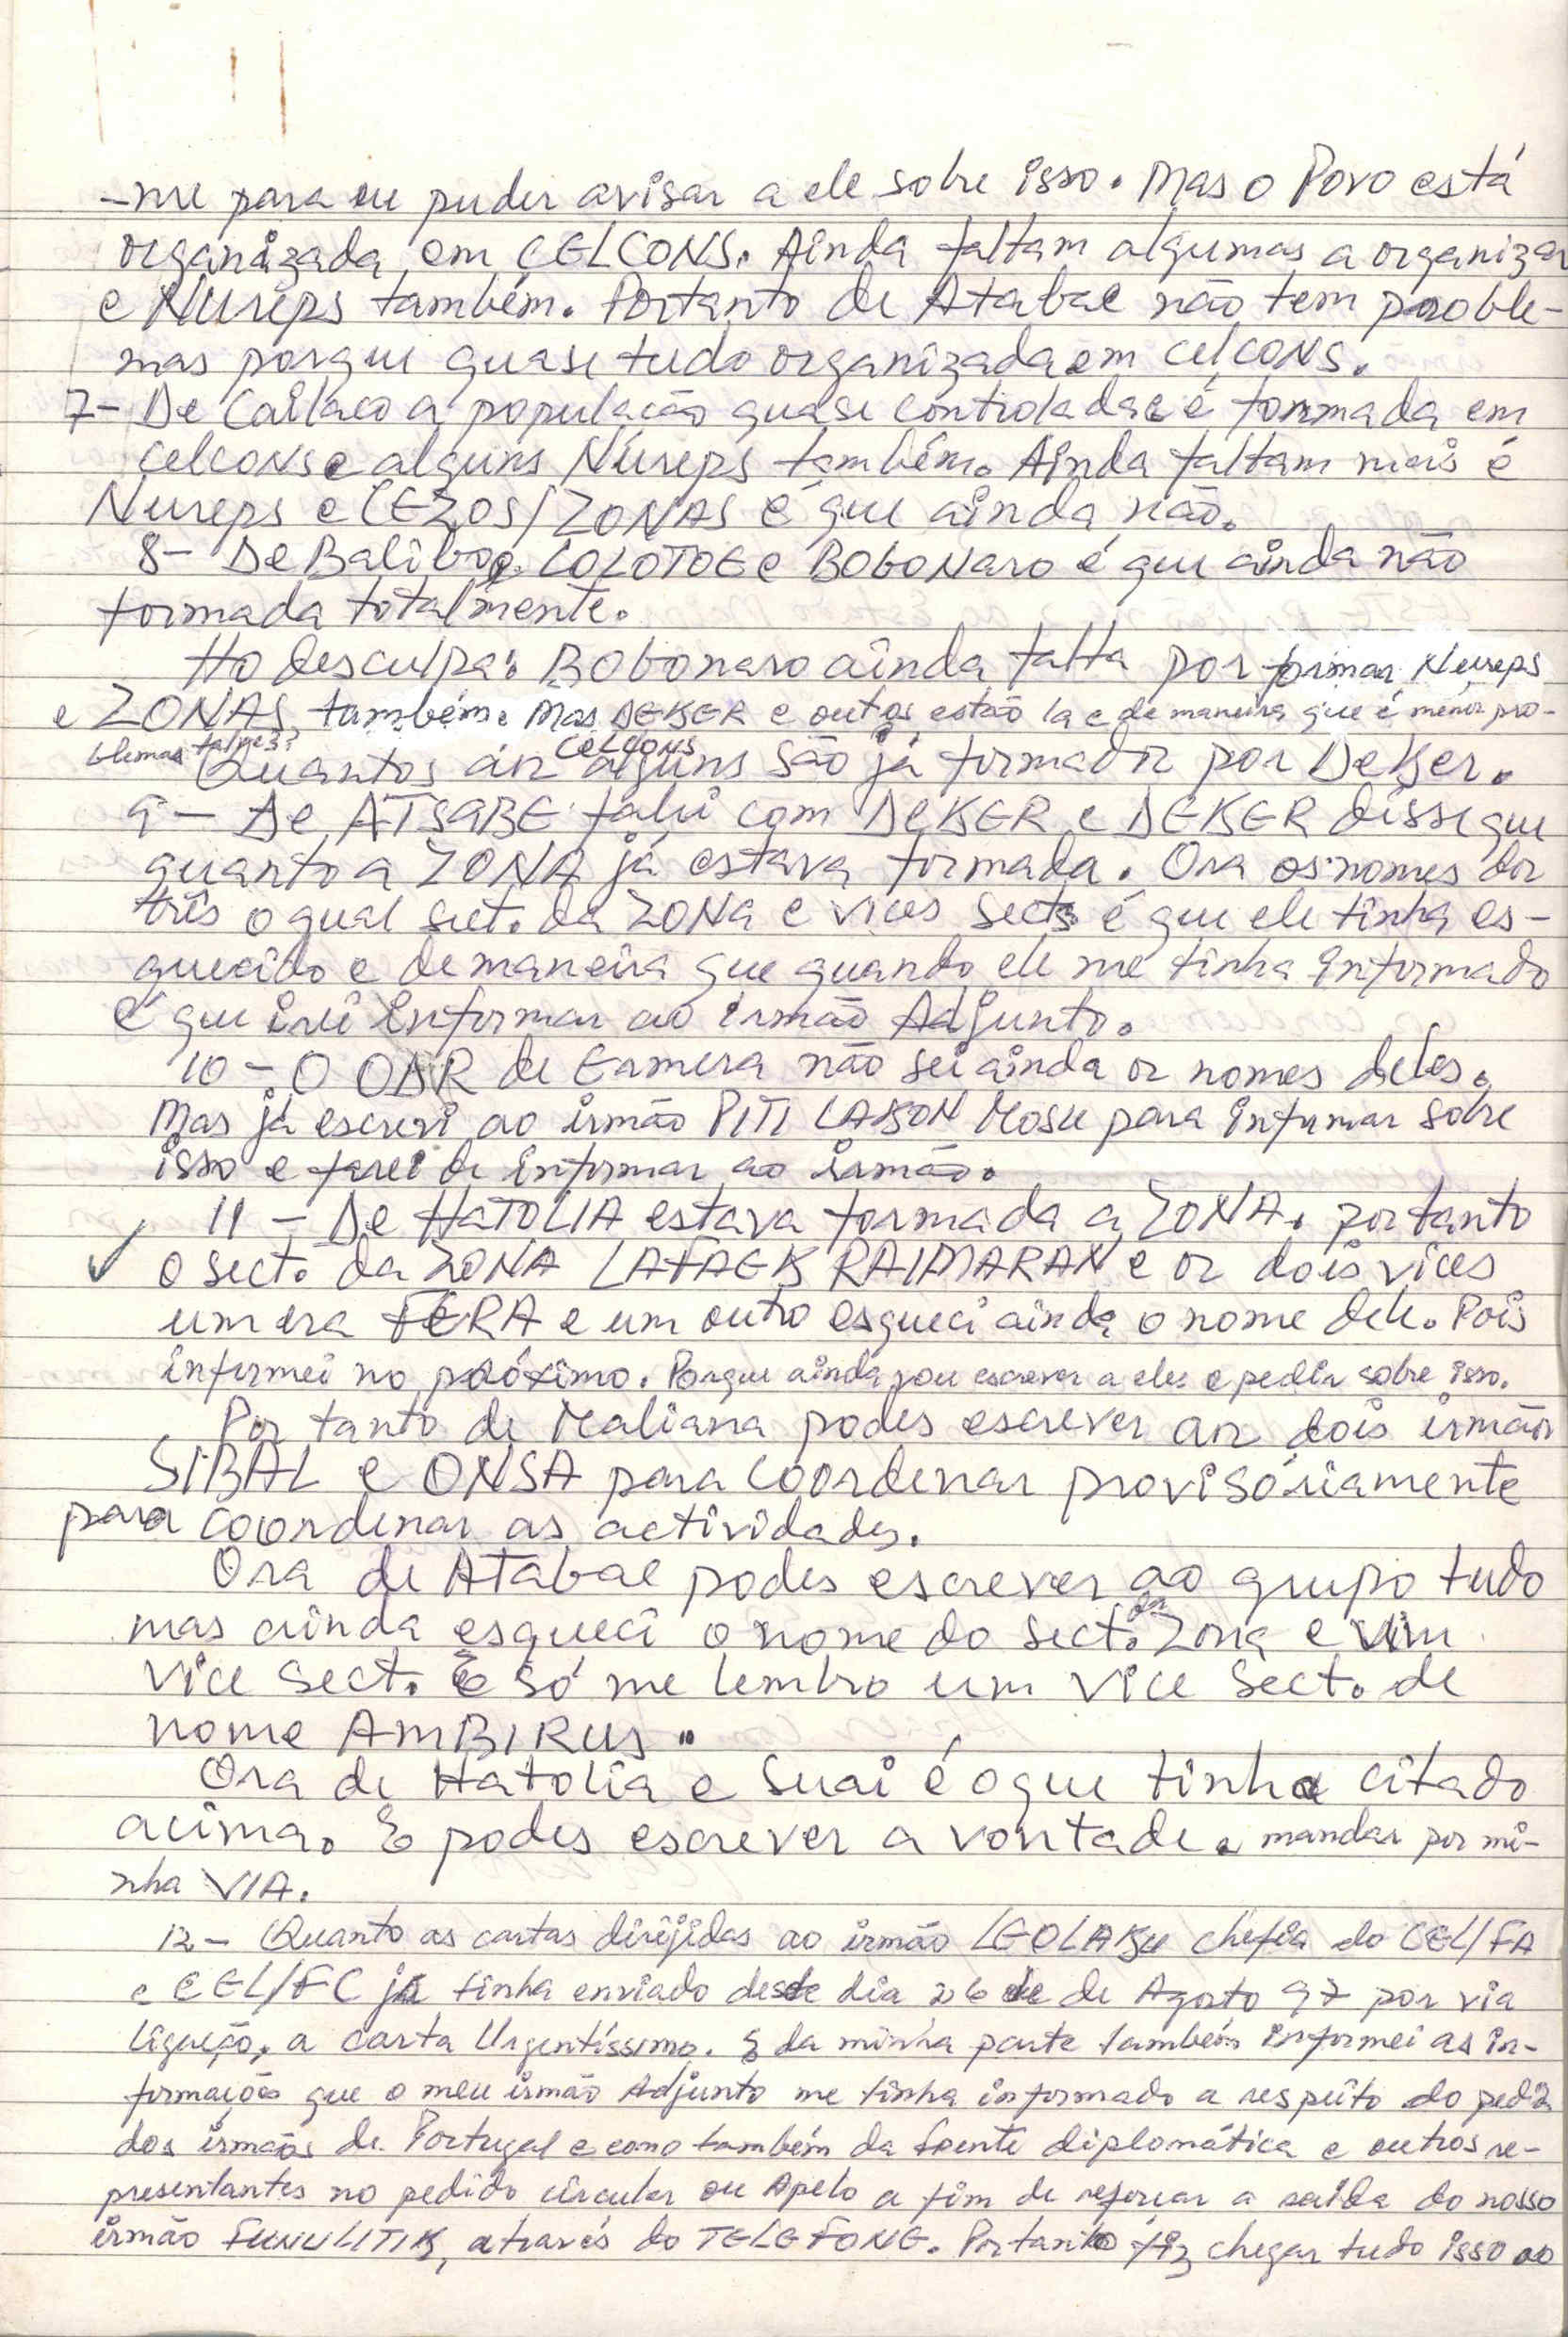 -me para eu puder avisar a ele sobre isso. Mas o Povo está
organizada em CELCONS. Ainda faltam algumas a organizar
e Nureps também. Portanto de Atabae não tem proble-
mas porque quase tudo organizada em celcons.
7- De Cailaco a população quase controlada e é formada em
celcons e alguns Núreps também. Ainda faltam mais é
Nureps e CEZOS/ZONAS é que ainda não.
8- De Balibo e LOLOTOE e BOBONARO é que ainda não
formada totalmente.
Ho desculpa: Bobonaro ainda falta por formar Nureps
e ZONAS também. Mas DEKER e outos estão la e de maneira que é menor pro-
blemas talvés?
Quantos aos celcons alguns são já formados por Deker.
9- De ATSABE falei com DEKER e DEKER disse que
quanto a ZONA já estava formada. Ora os nomes dos
três o qual sect. da ZONA e vices sects é que ele tinha es-
quecido e de maneira que quando ele me tinha informado
é que irei informar ao irmão Adjunto.
10- O ODR de Eamera não sei ainda os nomes deles.
Mas já escrevi ao irmão PITI LAKON Mosu para informar sobre
isso e farei de informar ao irmão.
11- De HATOLIA estava formada a ZONA. portanto
o sect. da ZONA LAFAEK RAIMARAN e os dois vices
um era FERA e um outro esqueci ainda o nome dele. Pois
informei no próximo. Porque ainda vou escrever a eles e pedir sobre isso.
Por tanto de Maliana podes escrever aos dois irmãos
SIBAL e ONSA para coordenar provisóriamente
para coordenar as actividades.
Ora de Atabae podes escrever ao grupo tudo
mas ainda esqueci o nome do sect. da Zona e um
vice sect. E só me lembro um vice sect. de
nome AMBIRUS.
Ora de Hatolia e Suai é o que tinha citado
acima. E podes escrever a vontade e mandar por mi-
nha VIA.
12- Quanto as cartas dirijidas ao irmão LEOLAKU chefia do CEL/FA
e CEL/FC já tinha enviado desde dia 26 de de Agosto 97 por via
ligação, a carta Urgentíssimo. E da minha parte também informei as in-
formações que o meu irmão Adjunto me tinha informado a respeito do pedido
dos irmãos de Portugal e como também da frente diplomática e outros re-
presentantes no pedido circular ou Apelo a fim de reforçar a saida do nosso
irmão FUNULITIK, através do TELEFONE. Portanto fiz chegar tudo isso ao